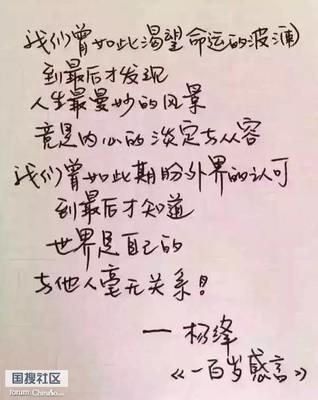 我们曾如此渴望命运的波澜
到最后才发现
人生最曼妙的风景
竟是内心的淡定与从容
我们曾如此期盼外界的认可
到最后才知道
世界是自己的
与他人毫无关系！
—杨绛
《一百岁感言》
国搜社区
forum.Chinaso.com